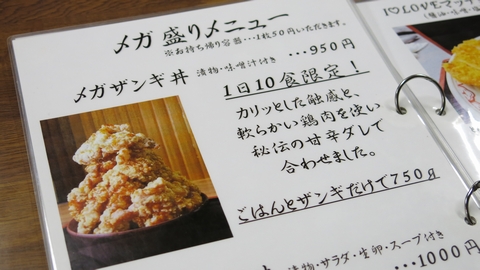 メガ盛りメニュー
※お持ち帰り容器…1枚50円いただきます。
メガザンギ丼 漬物・味噌汁付き …950円
1日10食限定！
カリッとした触感と、
軟らかい鶏肉を使い
秘伝の甘辛ダレで
合わせました。
ごはんとザンギだけで750g
漬物・サラダ・生卵・スープ付き
…1000円
I♡LOVEマッ